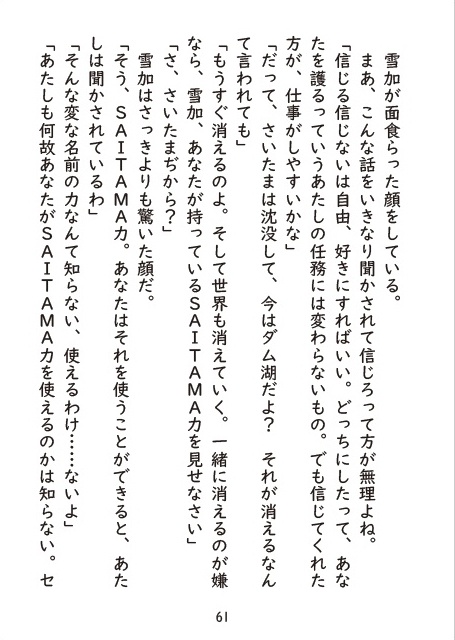 雪加が面食らった顔をしている。
まあ、こんな話をいきなり聞かされて信じろって方が無理よね。
「信じる信じないは自由、好きにすればいい。どっちにしたって、あな
たを護るっていうあたしの任務には変わらないもの。でも信じてくれた
方が、仕事がしやすいかな」
「だって、さいたまは沈没して、今はダム湖だよ？　それが消えるなん
て言われても」
「もうすぐ消えるのよ。そして世界も消えていく。一緒に消えるのが嫌
なら、雪加、あなたが持っているＳＡＩＴＡＭＡ力を見せなさい」
「さ、さいたまぢから？」
雪加はさっきよりも驚いた顔だ。
「そう、ＳＡＩＴＡＭＡ力。あなたはそれを使うことができると、あた
しは聞かされているわ」
「そんな変な名前の力なんて知らない、使えるわけ……ないよ」
「あたしも何故あなたがＳＡＩＴＡＭＡ力を使えるのかは知らない。セ
61